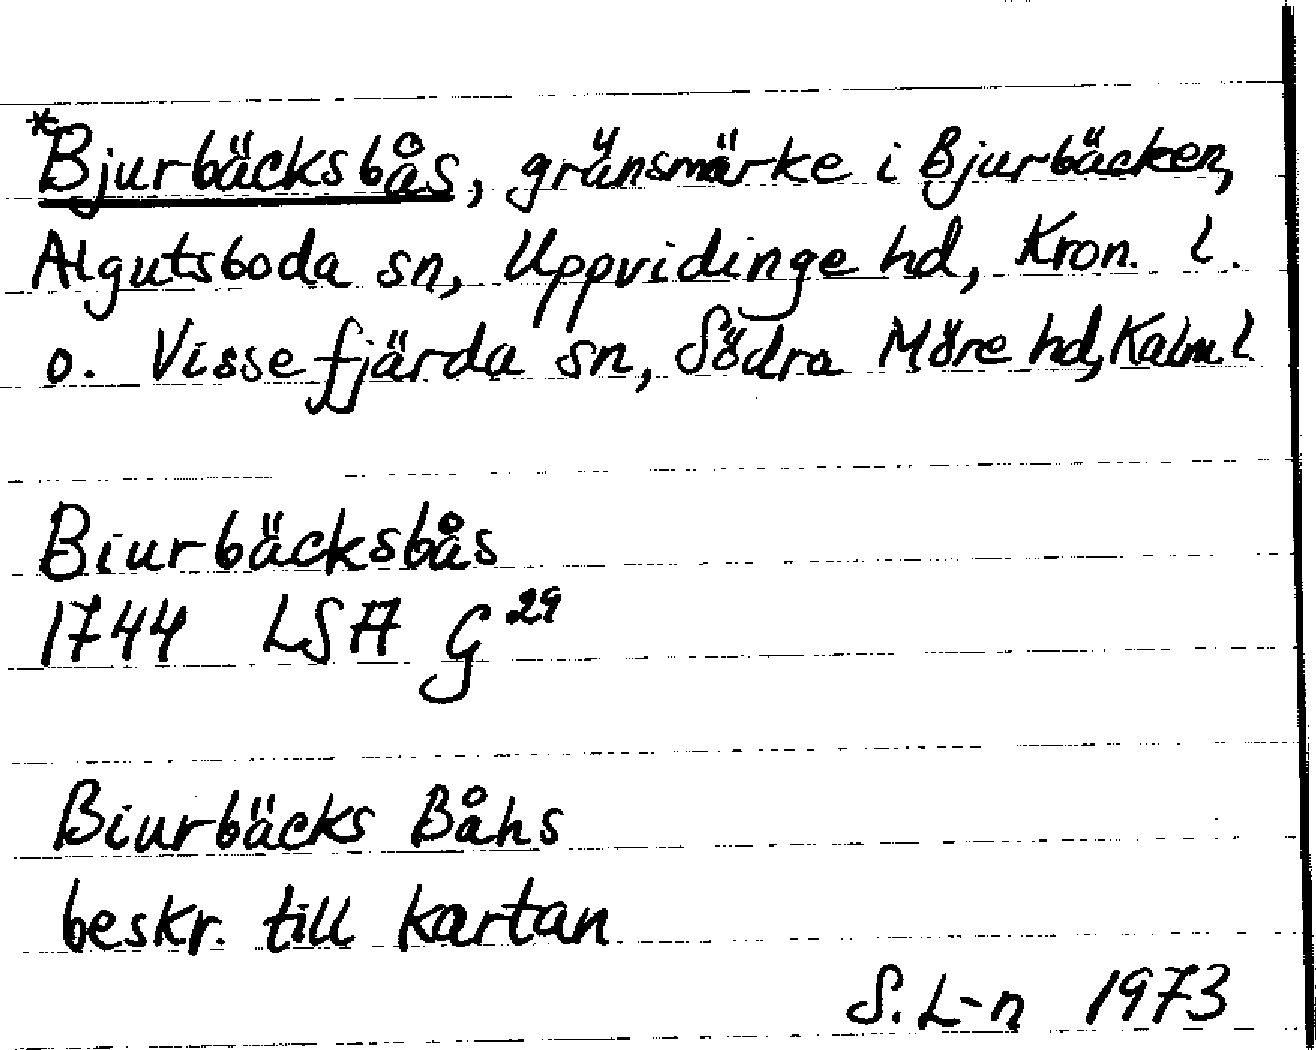 *Bjurbäcksbås, gränsmärke i Bjurbäcken,
Algutsboda sn, Uppvidinge hd, Kron. l.
o. Vissefjärda sn, Södra Möre hd, Kalm l
Biurbäcksbås
1744 LSA G 29
Biurbäcks Båhs
beskr. till kartan
S. L-n 1973